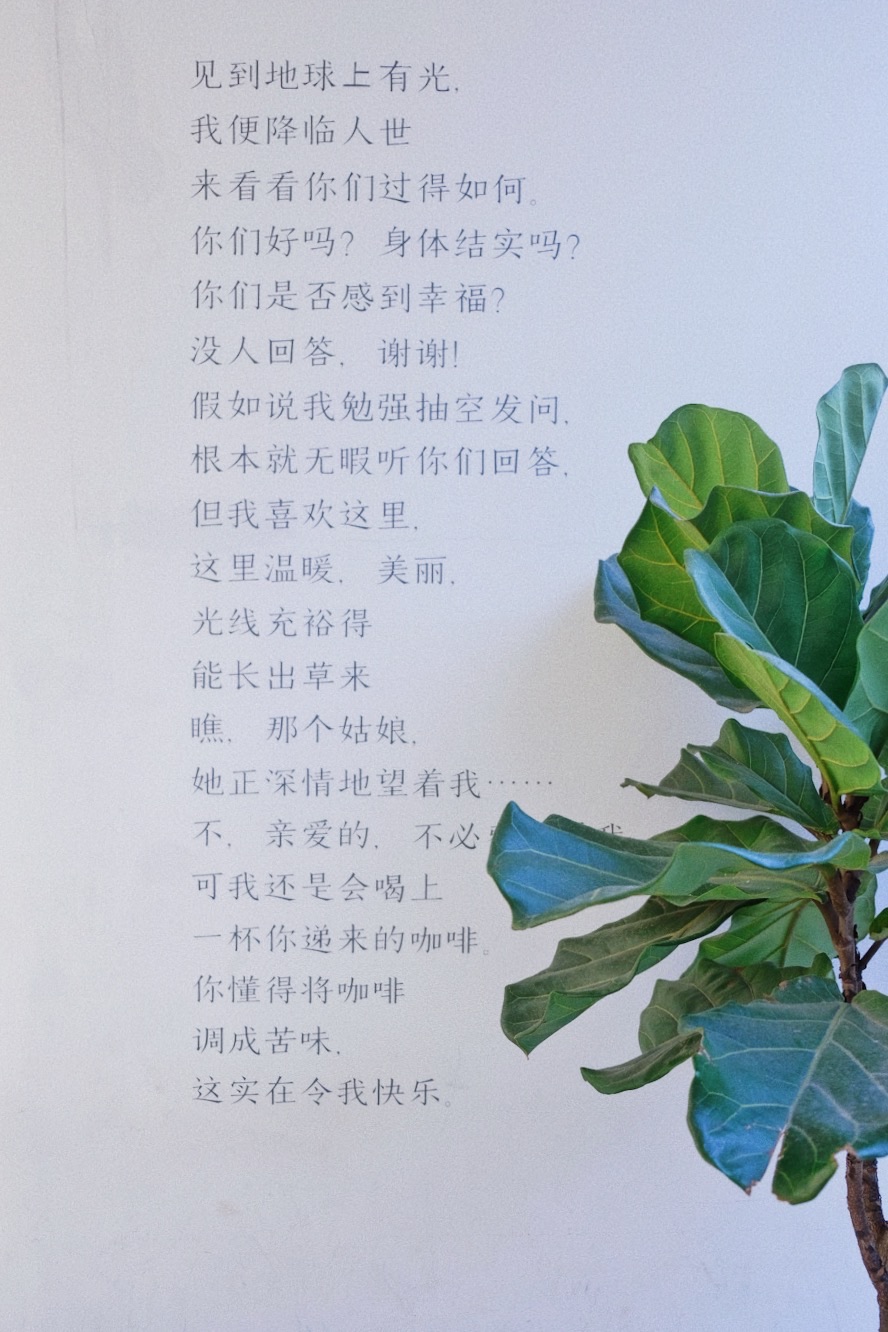 见到地球上有光，
我便降临人世
来看看你们过得如何。
你们好吗？ 身体结实吗？
你们是否感到幸福？
没人回答， 谢谢！
假如说我勉强抽空发问，
根本就无暇听你们回答，
但我喜欢这里，
这里温暖， 美丽，
光线充裕得
能长出草来
瞧， 那个姑娘，
她正深情地望着我……
不， 亲爱的， 不必 我
可我还是会喝上
一杯你递来的咖啡。
你懂得将咖啡
调成苦味，
这实在令我快乐。